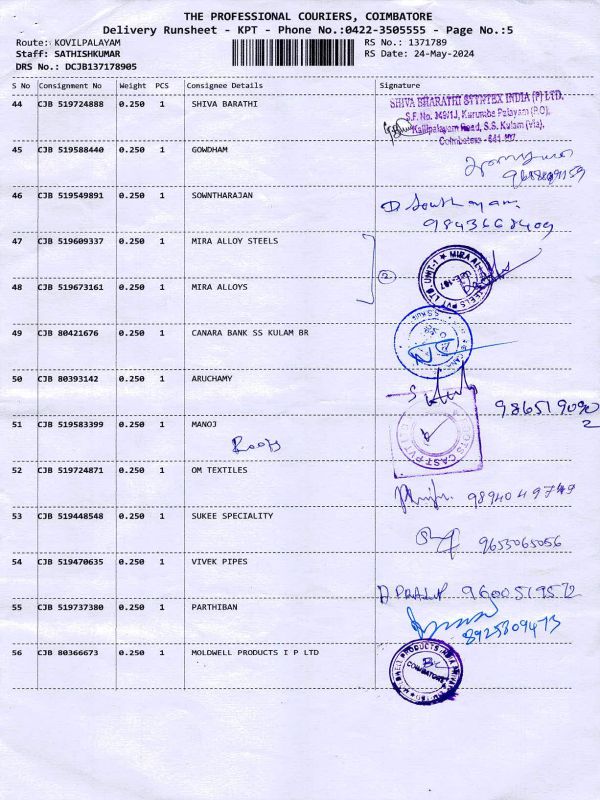 THE PROFESSIONAL COURIERS, COIMBATORE
Delivery Runsheet - KPT - Phone No.:0422-3505555 - Page No.:5
Route: KOVILPALAYAM
RS No.: 1371789
Staff: SATHISHKUMAR
RS Date: 24-May-2024
DRS No.: DCJB137178905
S No Consignment No Weight PCS Consignee Details Signature
44 CJB 519724888 0.250 1 SHIVA BARATHI
SHIVA BHARATHI SYNTEX INDIA (P) LTD.
S.F. No. 349/1J, Kurumba Palayam (P.O),
Kallipalayam Road, S.S. Kulam (Via),
Coimbatore - 641 107
45 CJB 519588440 0.250 1 GOWDHAM
46 CJB 519549891 0.250 1 SOWNTHARAJAN
47 CJB 519609337 0.250 1 MIRA ALLOY STEELS
2
48 CJB 519673161 0.250 1 MIRA ALLOYS
49 CJB 80421676 0.250 1 CANARA BANK SS KULAM BR
50 CJB 80393142 0.250 1 ARUCHAMY
51 CJB 519583399 0.250 1 MANOJ
Roots
9865190902
52 CJB 519724871 0.250 1 OM TEXTILES
9894049749
53 CJB 519448548 0.250 1 SUKEE SPECIALITY
9653065056
54 CJB 519470635 0.250 1 VIVEK PIPES
9600519572
55 CJB 519737380 0.250 1 PARTHIBAN
8925809473
56 CJB 80366673 0.250 1 MOLDWELL PRODUCTS I P LTD
COIMBATORE